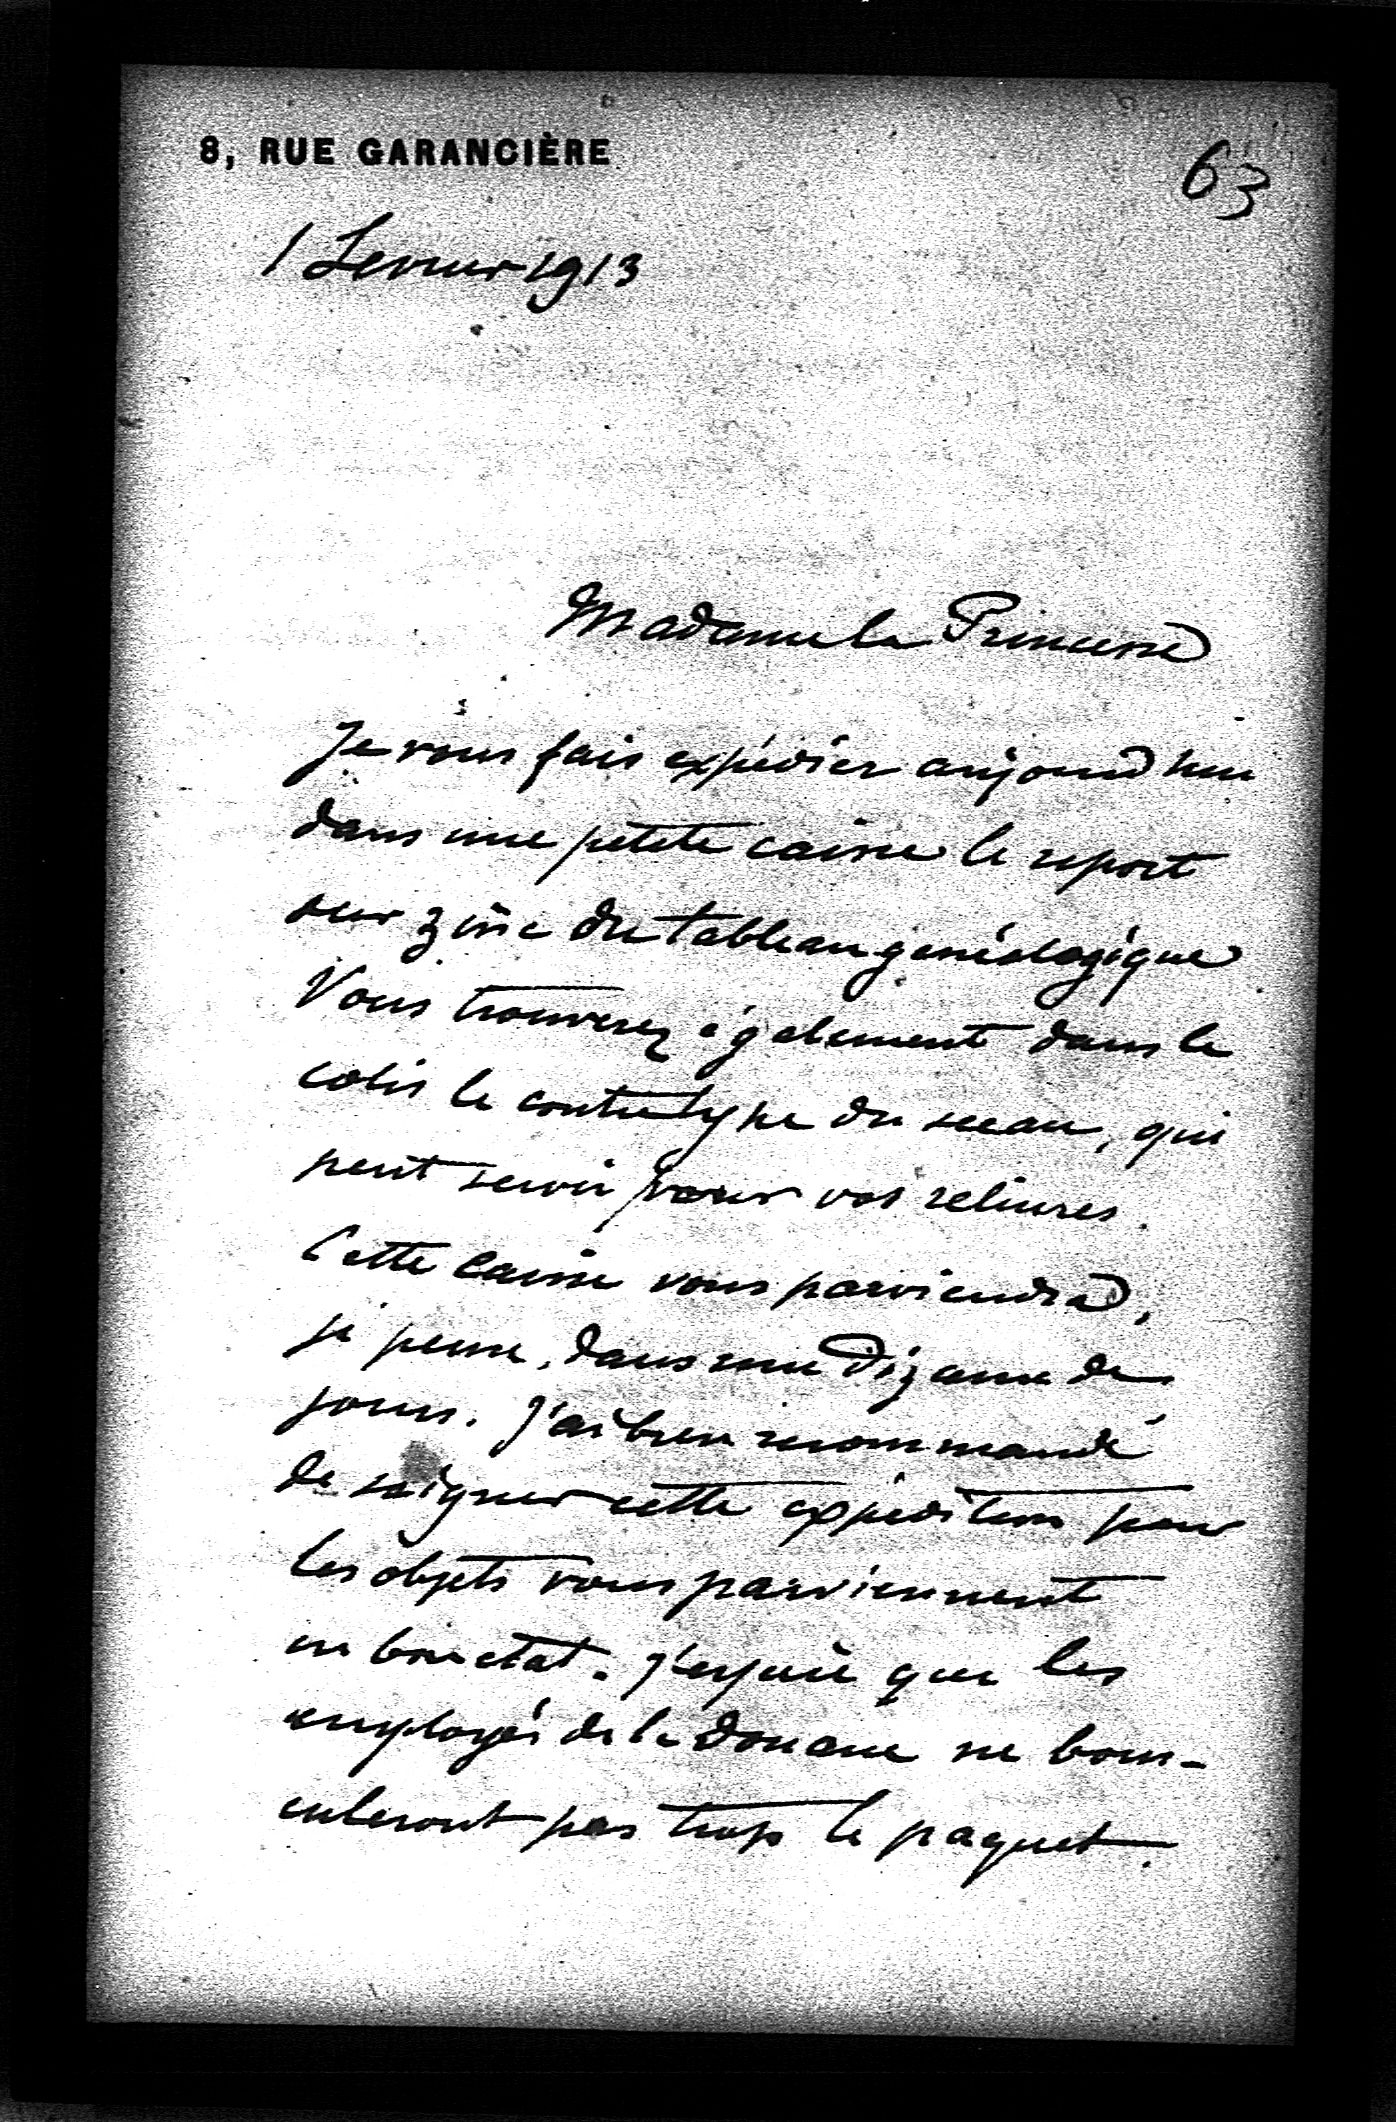 8, RUE GARANCIÈRE
63
1 Fevrier 1913
Madame la Princesse
Je vous fais expédier aujourd'hui
dans une petite caisse le report
sur zinc du tableau généalogique
Vous trouverez également dans le
colis le contretype du sceau, qui
peut servir pour vos reliures.
Cette caisse vous parviendra,
je pense, dans une dizaine de
jours. J'ai bien recommandé
de soigner cette expédition pour
les objets vous parviennent
en bon etat. J'espère que les
employés de la douane ne bous-
culeront pas trop le paquet.